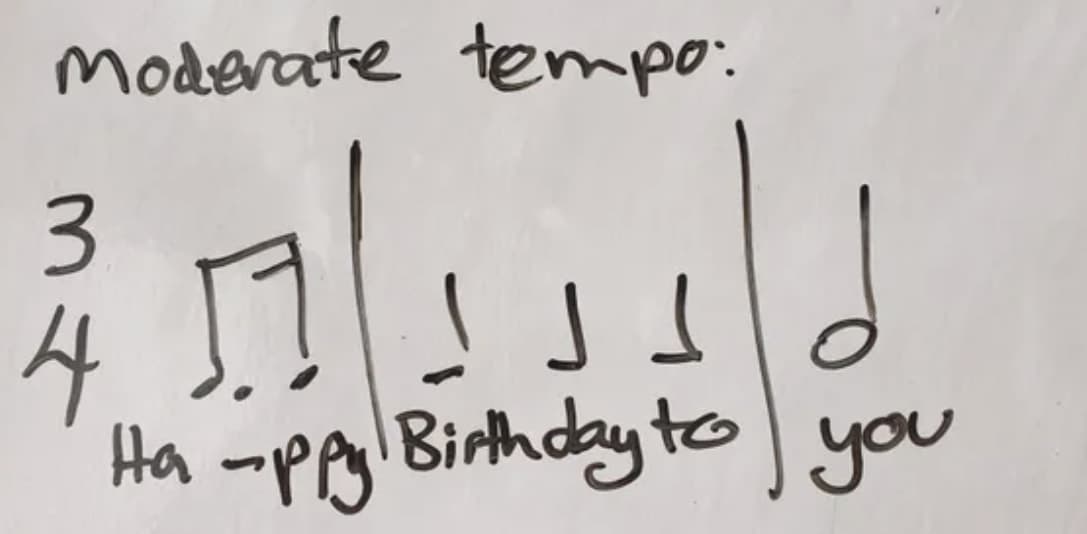 Moderate tempo:
3
4
Ha-ppy Birthday to you